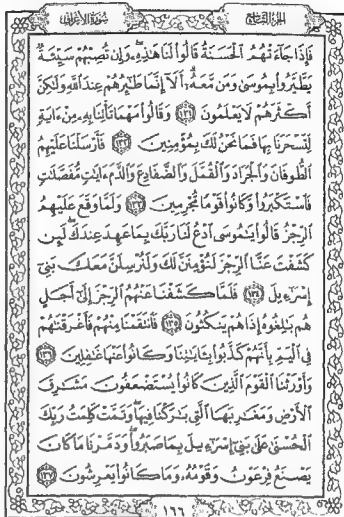 الجزء التاسع
سورة الأعراف
فَإِذَا جَاءَتْهُمُ الْحَسَنَةُ قَالُوا لَنَا هَٰذِهِ وَإِن تُصِبْهُمْ سَيِّئَةٌ
يَطَّيَّرُوا بِمُوسَىٰ وَمَن مَّعَهُ أَلَا إِنَّمَا طَائِرُهُمْ عِندَ اللَّهِ وَلَٰكِنَّ
أَكْثَرَهُمْ لَا يَعْلَمُونَ ١٣١ وَقَالُوا مَهْمَا تَأْتِنَا بِهِ مِنْ ءَايَةٍ
لِّتَسْحَرَنَا بِهَا فَمَا نَحْنُ لَكَ بِمُؤْمِنِينَ ١٣٢ فَأَرْسَلْنَا عَلَيْهِمُ
الطُّوفَانَ وَالْجَرَادَ وَالْقُمَّلَ وَالضَّفَادِعَ وَالدَّمَ ءَايَٰتٍ مُّفَصَّلَٰتٍ
فَاسْتَكْبَرُوا وَكَانُوا قَوْمًا مُّجْرِمِينَ ١٣٣ وَلَمَّا وَقَعَ عَلَيْهِمُ
الرِّجْزُ قَالُوا يَٰمُوسَى ادْعُ لَنَا رَبَّكَ بِمَا عَهِدَ عِندَكَ لَئِن
كَشَفْتَ عَنَّا الرِّجْزَ لَنُؤْمِنَنَّ لَكَ وَلَنُرْسِلَنَّ مَعَكَ بَنِي
إِسْرَٰءِيلَ ١٣٤ فَلَمَّا كَشَفْنَا عَنْهُمُ الرِّجْزَ إِلَىٰ أَجَلٍ
هُم بَٰلِغُوهُ إِذَا هُمْ يَنكُثُونَ ١٣٥ فَانتَقَمْنَا مِنْهُمْ فَأَغْرَقْنَٰهُمْ
فِي الْيَمِّ بِأَنَّهُمْ كَذَّبُوا بِـَٔايَٰتِنَا وَكَانُوا عَنْهَا غَٰفِلِينَ ١٣٦
وَأَوْرَثْنَا الْقَوْمَ الَّذِينَ كَانُوا يُسْتَضْعَفُونَ مَشَٰرِقَ
الْأَرْضِ وَمَغَٰرِبَهَا الَّتِي بَٰرَكْنَا فِيهَا وَتَمَّتْ كَلِمَتُ رَبِّكَ
الْحُسْنَىٰ عَلَىٰ بَنِي إِسْرَٰءِيلَ بِمَا صَبَرُوا وَدَمَّرْنَا مَا كَانَ
يَصْنَعُ فِرْعَوْنُ وَقَوْمُهُ وَمَا كَانُوا يَعْرِشُونَ ١٣٧
١٦٦